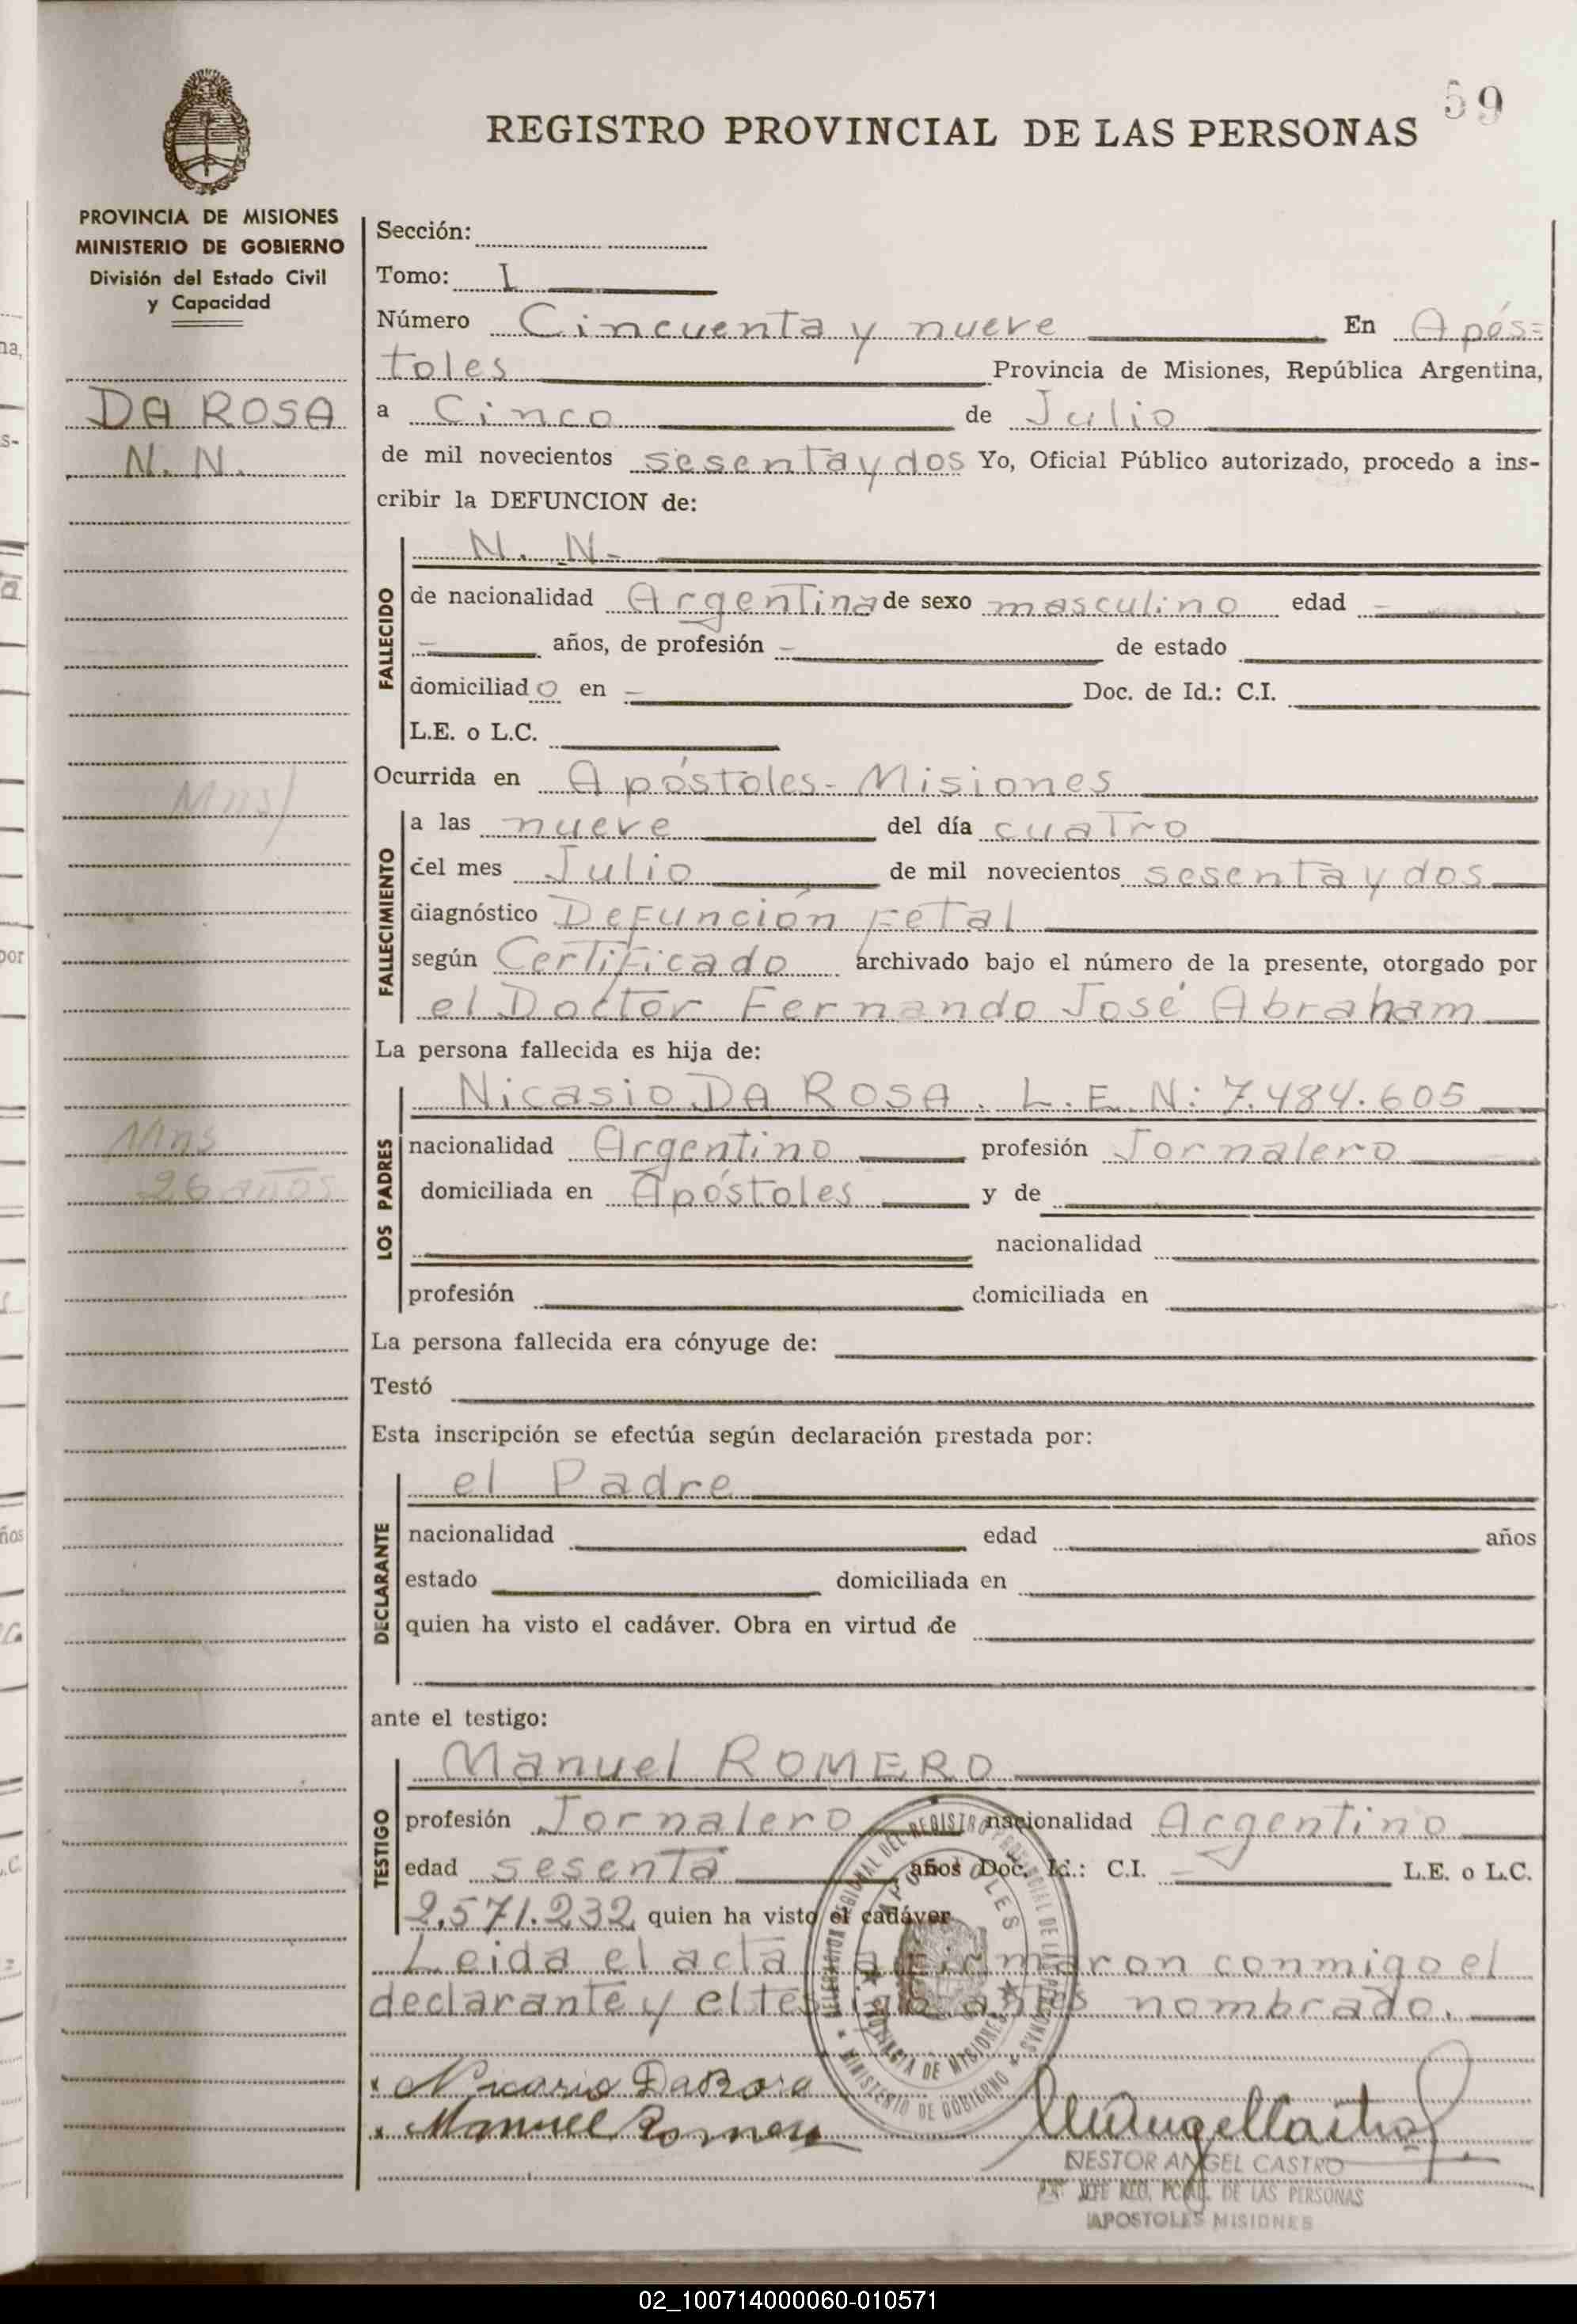 59
REGISTRO PROVINCIAL DE LAS PERSONAS
PROVINCIA DE MISIONES
MINISTERIO DE GOBIERNO
División del Estado Civil
y Capacidad
DA ROSA
N. N.
Mns
Mns
26 años
Sección:
Tomo: I
Número Cincuenta y nueve En Após=
toles Provincia de Misiones, República Argentina,
a Cinco de Julio
de mil novecientos sesenta y dos Yo, Oficial Público autorizado, procedo a ins-
cribir la DEFUNCION de:
FALLECIDO
N. N.-
de nacionalidad Argentina de sexo masculino edad -
- años, de profesión - de estado
domiciliado en - Doc. de Id.: C.I.
L.E. o L.C.
Ocurrida en Apóstoles - Misiones
FALLECIMIENTO
a las nueve del día cuatro
del mes Julio de mil novecientos sesenta y dos
diagnóstico Defunción Fetal
según Certificado archivado bajo el número de la presente, otorgado por
el Doctor Fernando José Abraham
La persona fallecida es hija de:
LOS PADRES
Nicasio DA ROSA. L. E. N: 7.484.605
nacionalidad Argentino profesión Jornalero
domiciliada en Apóstoles y de
nacionalidad
profesión domiciliada en
La persona fallecida era cónyuge de:
Testó
Esta inscripción se efectúa según declaración prestada por:
DECLARANTE
el Padre
nacionalidad edad años
estado domiciliada en
quien ha visto el cadáver. Obra en virtud de
ante el testigo:
TESTIGO
Manuel ROMERO
profesión Jornalero nacionalidad Argentino
edad sesenta años Doc. Id.: C.I. - L.E. o L.C.
2.571.232 quien ha visto el cadáver
Leida el acta la firmaron conmigo el
declarante y el testigo antes nombrado.
DELEGACION REGIONAL DEL REGISTRO PROVINCIAL DE LAS PERSONAS
APOSTOLES
PROVINCIA DE MISIONES
MINISTERIO DE GOBIERNO
Nicasio Da Rosa
Manuel Romero
NESTOR ANGEL CASTRO
JEFE REG. PCIAL. DE LAS PERSONAS
APOSTOLES MISIONES
02_100714000060-010571